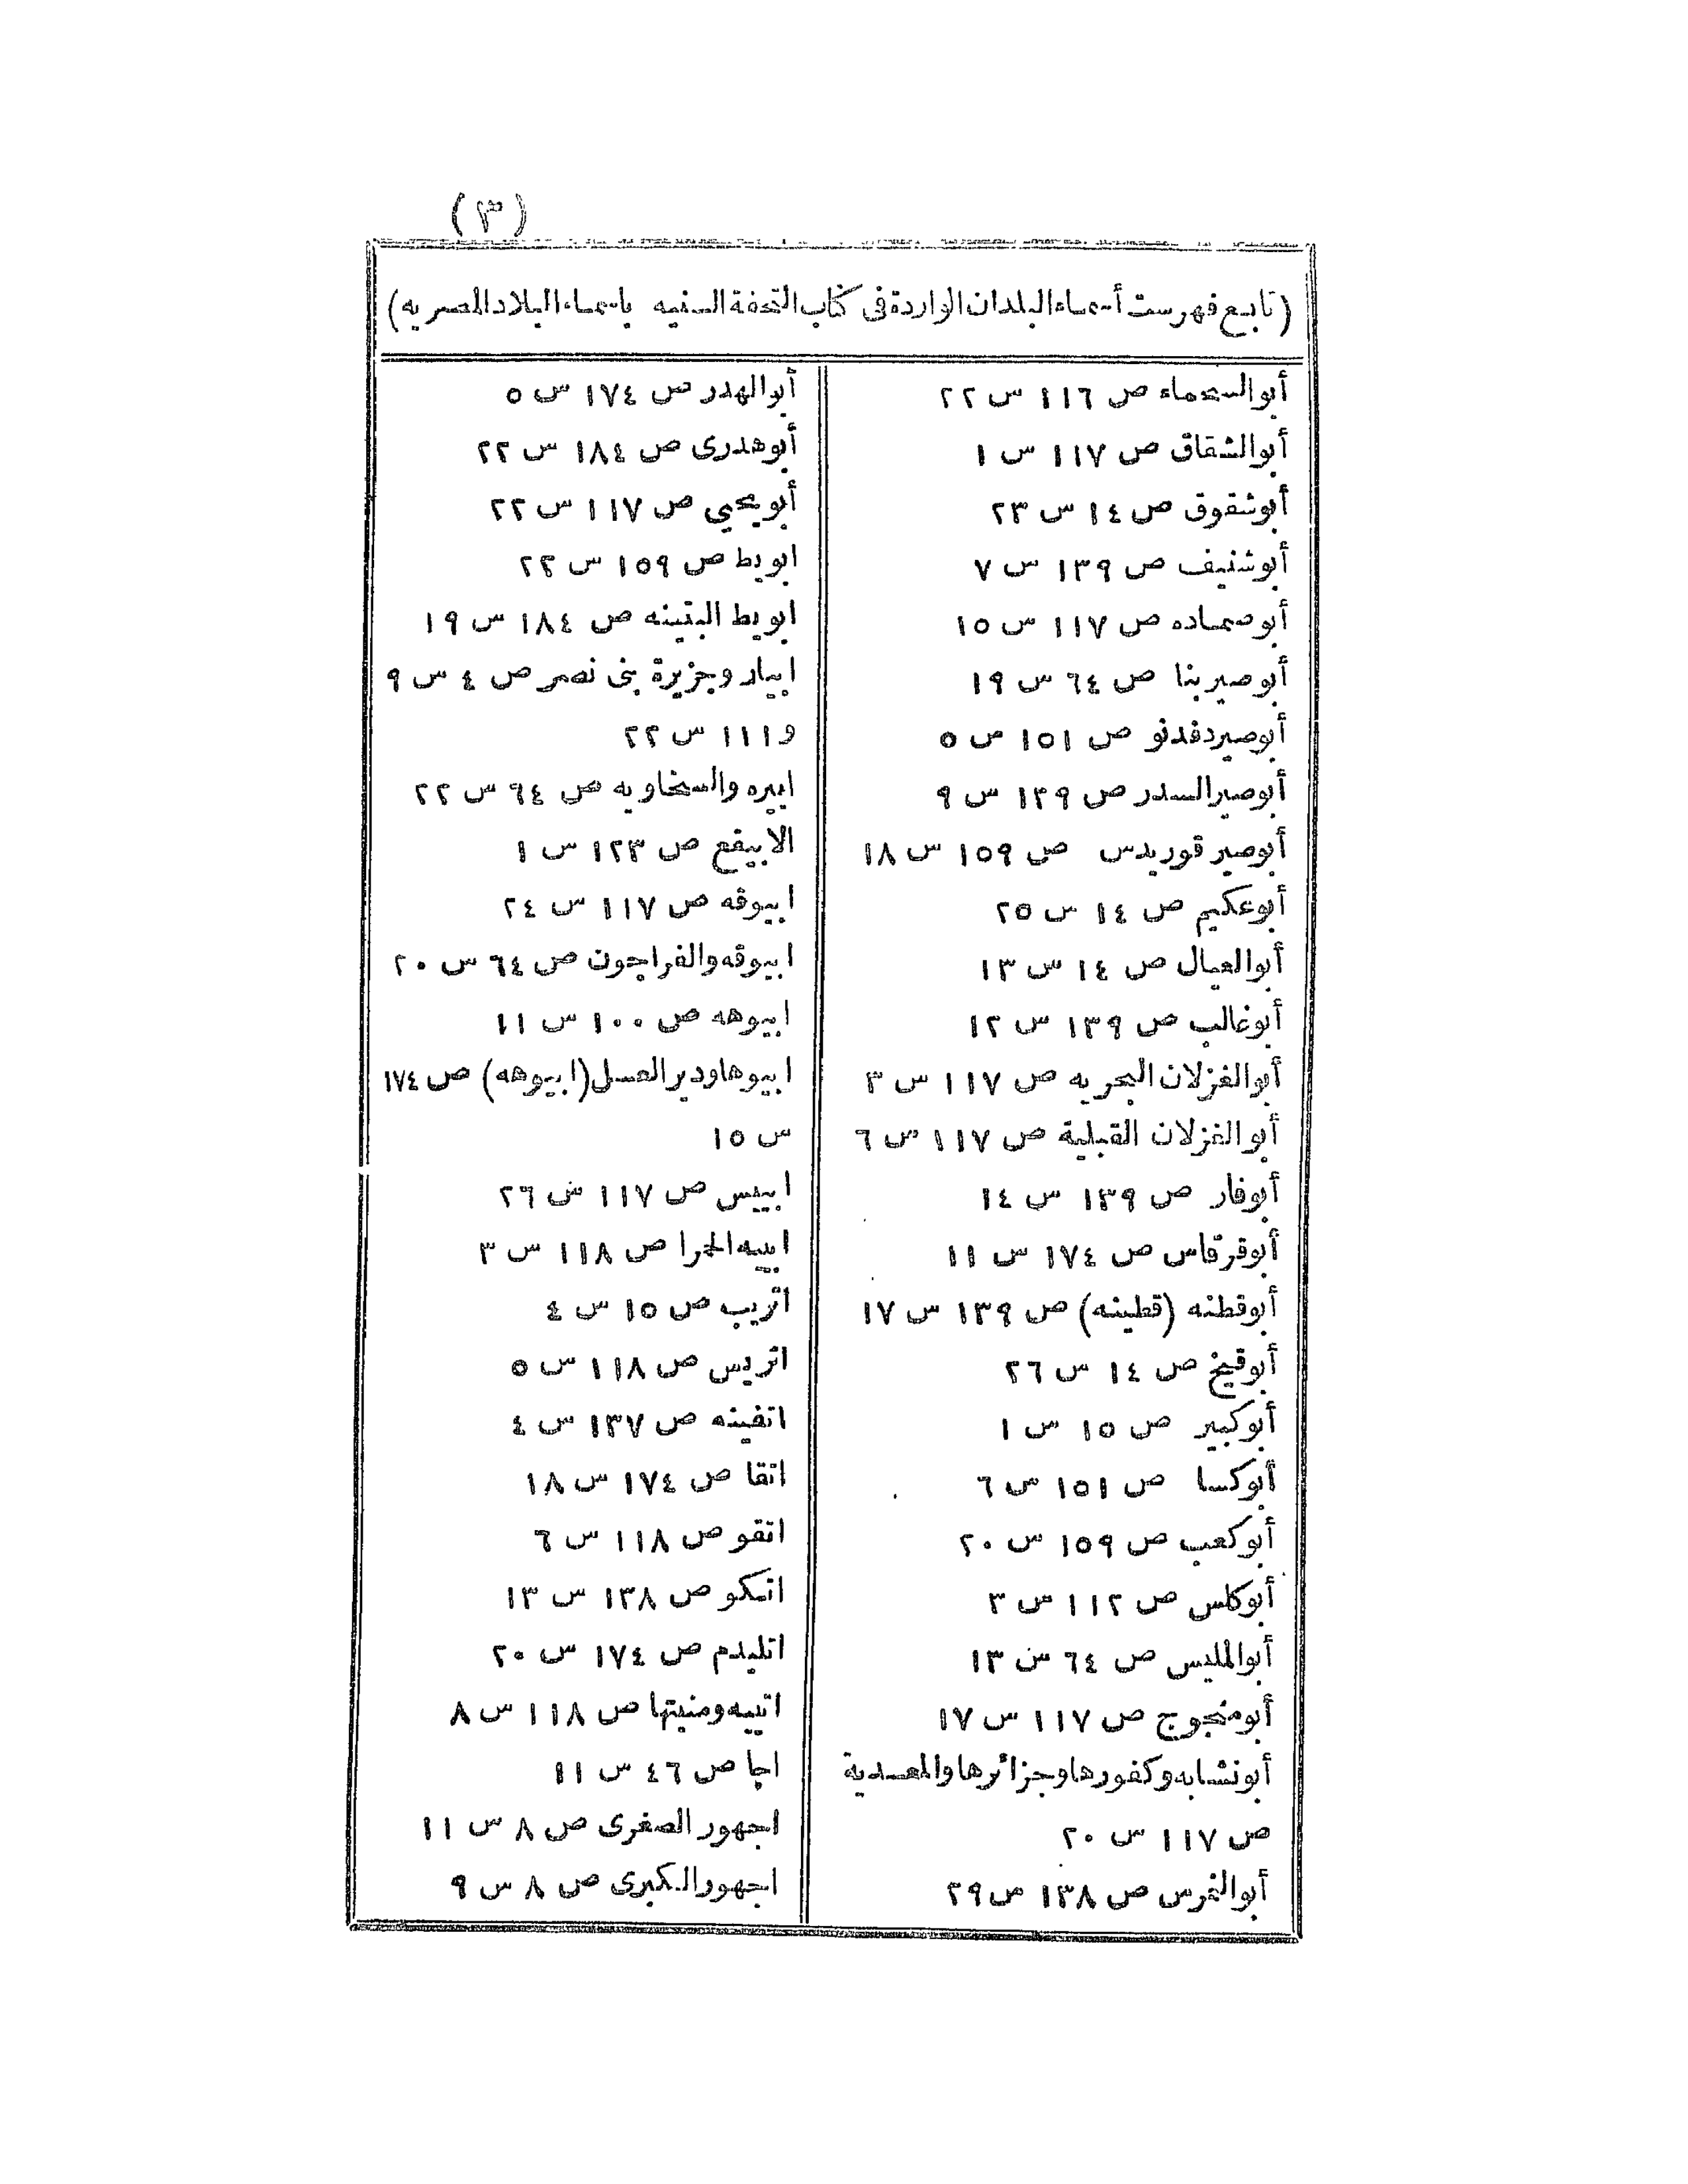 (٣)
(تابع فهرست أسماء البلدان الواردة فى كتاب التحفة السنيه باسماء البلاد المصريه)
أبو السحماء ص ١١٦ س ٢٢
أبو الشقاق ص ١١٧ س ١
أبو شقوق ص ١٤ س ٢٣
أبو شنيف ص ١٣٩ س ٧
أبو صماده ص ١١٧ س ١٥
أبو صير بنا ص ٦٤ س ١٩
أبو صير دفدنو ص ١٥١ س ٥
أبو صير السدر ص ١٣٩ س ٩
أبو صير قوريدس ص ١٥٩ س ١٨
أبو عكيم ص ١٤ س ٢٥
أبو العيال ص ١٤ س ١٣
أبو غالب ص ١٣٩ س ١٢
أبو الغزلان البحريه ص ١١٧ س ٣
أبو الغزلان القبلية ص ١١٧ س ٦
أبو فار ص ١٣٩ س ١٤
أبو قرقاس ص ١٧٤ س ١١
أبو قطنه (قطينه) ص ١٣٩ س ١٧
أبو قيخ ص ١٤ س ٢٦
أبو كبير ص ١٥ س ١
أبو كسا ص ١٥١ س ٦
أبو كعب ص ١٥٩ س ٢٠
أبو كلس ص ١١٢ س ٣
أبو المليس ص ٦٤ س ١٣
أبو منجوج ص ١١٧ س ١٧
أبو نشابه وكفورها وجزائرها والمعدية
ص ١١٧ س ٢٠
أبو النمرس ص ١٣٨ س ٢٩
أبو الهدر ص ١٧٤ س ٥
أبو هدرى ص ١٨٤ س ٢٢
أبو يحيي ص ١١٧ س ٢٢
ابويط ص ١٥٩ س ٢٢
ابويط البتينه ص ١٨٤ س ١٩
ابيار وجزيرة بنى نصر ص ٤ س ٩
و ١١١ س ٢٢
ابيره والسخاويه ص ٦٤ س ٢٢
الابيقع ص ١٢٣ س ١
ابيوقه ص ١١٧ س ٢٤
ابيوقه والفراجون ص ٦٤ س ٢٠
ابيوهه ص ١٠٠ س ١١
ابيوها ودير العسل (ابيوهه) ص ١٧٤
س ١٥
ابييس ص ١١٧ س ٢٦
ابييه الحمرا ص ١١٨ س ٣
اتريب ص ١٥ س ٤
اتريس ص ١١٨ س ٥
اتفينه ص ١٣٧ س ٤
اتقا ص ١٧٤ س ١٨
اتقو ص ١١٨ س ٦
اتكو ص ١٣٨ س ١٣
اتليدم ص ١٧٤ س ٢٠
اتييه ومنيتها ص ١١٨ س ٨
اجا ص ٤٦ س ١١
اجهور الصغرى ص ٨ س ١١
اجهور الكبرى ص ٨ س ٩